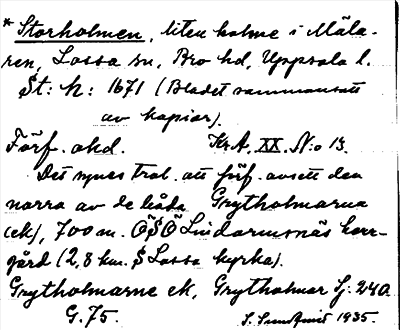 * Storholmen, liten holme i Mäla-
ren, Lossa sn, Bro hd, Uppsala l.
St: h: 1671 (Bladet sammansatt
av kopior).
Förf. okd. KrA. XX. N:o 13.
Det synes trol. att förf. avsett den
norra av de båda Grytholmarna
(ek), 700 m. ÖSÖ Lindormsnäs herr-
gård (2,8 km. S Lossa kyrka).
Grytholmarne ek, Grytholmar Sj: 240.
G. 75. S. Sundquist 1935.